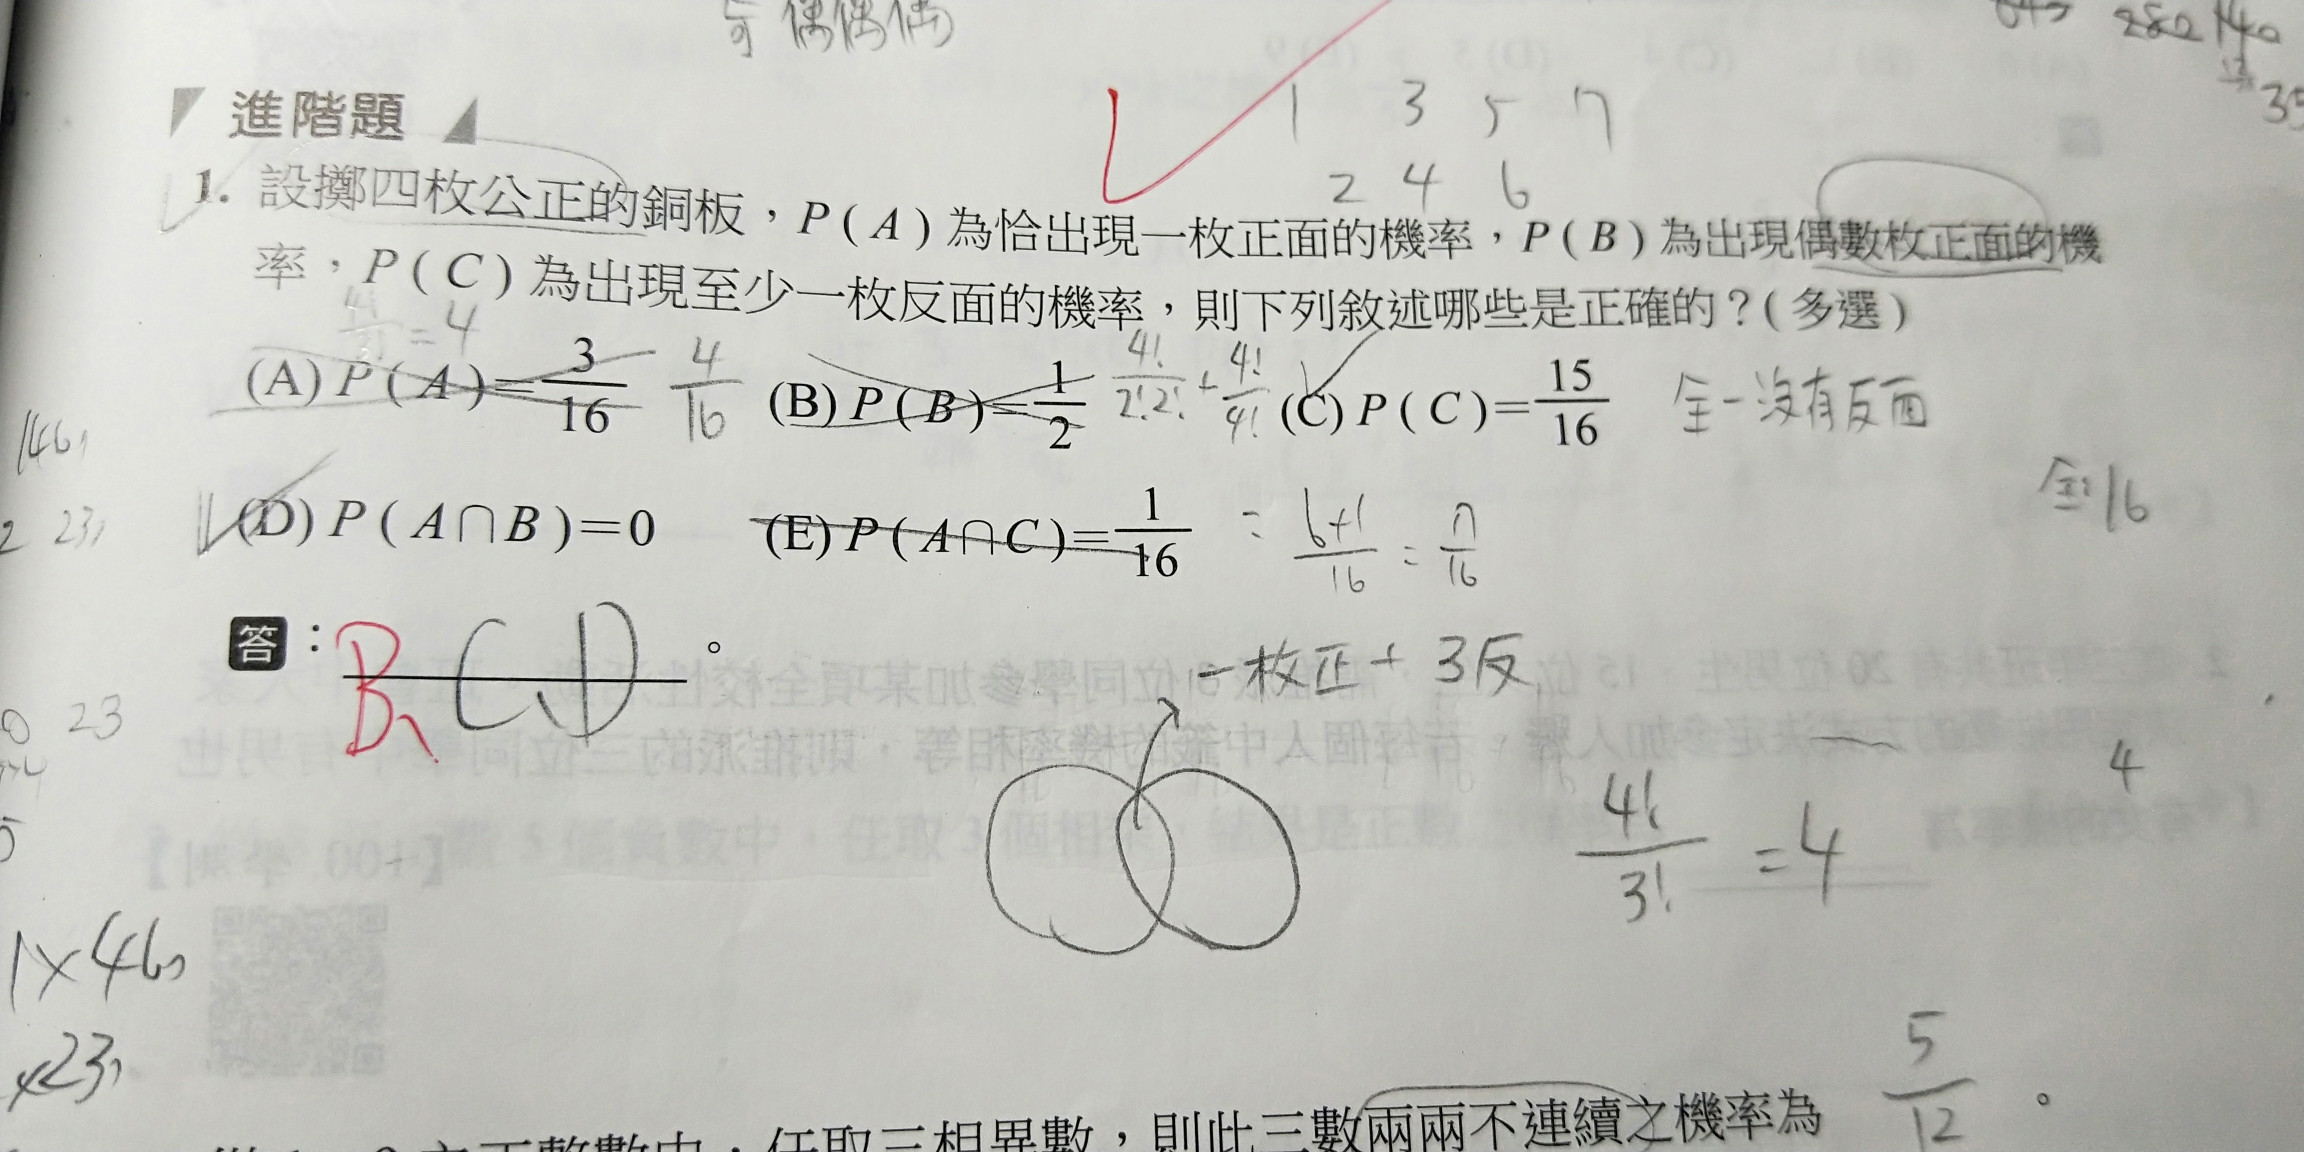 奇 偶偶偶
進階題
1 3 5 7
2 4 6
1. 設擲四枚公正的銅板，P(A)為恰出現一枚正面的機率，P(B)為出現偶數枚正面的機
率，P(C)為出現至少一枚反面的機率，則下列敘述哪些是正確的？(多選)
(A) P(A)=3/16 4/16 (B) P(B)=1/2 4!/2!2! + 4!/4! (C) P(C)=15/16 全-沒有反面
全:16
(D) P(A∩B)=0 (E) P(A∩C)=1/16 = 6+1/16 = 7/16
答：B、C、D。
一枚正+3反
4!/3! =4
4
1×46,
×23,
任取三相異數，則此三數兩兩不連續之機率為 5/12 。